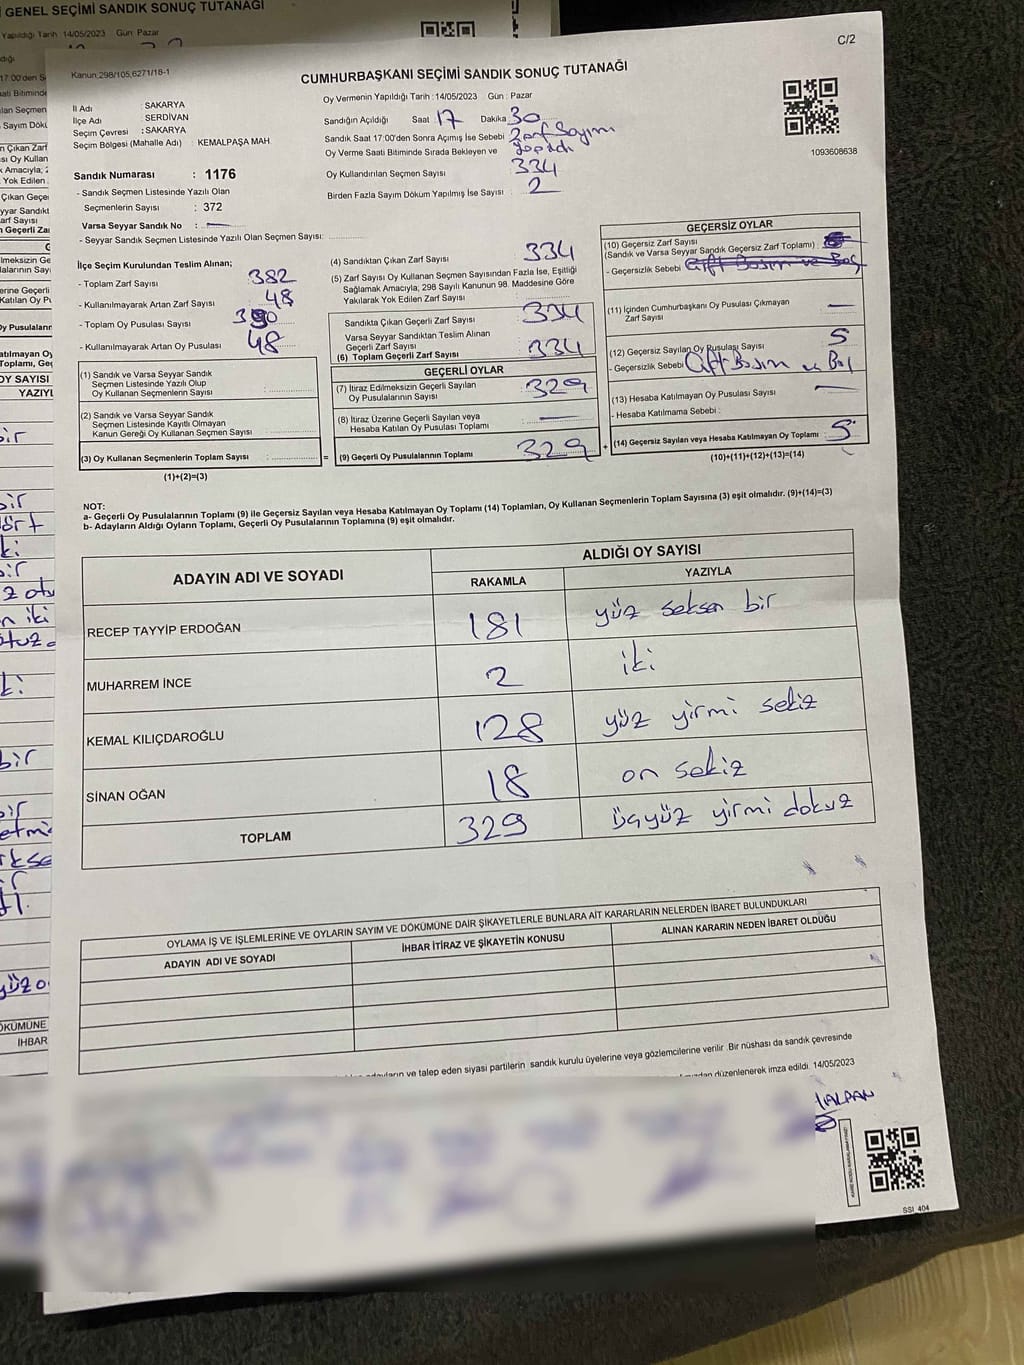 İ GENEL SEÇİMİ SANDIK SONUÇ TUTANAĞI
Yapıldığı Tarih 14/05/2023 Gün Pazar
C/2
Kanun;298/105,6271/18-1
CUMHURBAŞKANI SEÇİMİ SANDIK SONUÇ TUTANAĞI
İl Adı : SAKARYA
İlçe Adı : SERDİVAN
Seçim Çevresi : SAKARYA
Seçim Bölgesi (Mahalle Adı) : KEMALPAŞA MAH.
Sandık Numarası : 1176
- Sandık Seçmen Listesinde Yazılı Olan
Seçmenlerin Sayısı : 372
Varsa Seyyar Sandık No : —
- Seyyar Sandık Seçmen Listesinde Yazılı Olan Seçmen Sayısı:
Oy Vermenin Yapıldığı Tarih : 14/05/2023 Gün : Pazar
Sandığın Açıldığı Saat 17 Dakika 30
Sandık Saat 17:00'den Sonra Açımış İse Sebebi Zarf Sayımı
Oy Verme Saati Bitiminde Sırada Bekleyen ve yapıldı
Oy Kullandırılan Seçmen Sayısı 334
Birden Fazla Sayım Döküm Yapılmış İse Sayısı 2
1093608638
İlçe Seçim Kurulundan Teslim Alınan;
- Toplam Zarf Sayısı : 382
- Kullanılmayarak Artan Zarf Sayısı : 48
- Toplam Oy Pusulası Sayısı
- Kullanılmayarak Artan Oy Pusulası : 48
(1) Sandık ve Varsa Seyyar Sandık
Seçmen Listesinde Yazılı Olup
Oy Kullanan Seçmenlerin Sayısı :
(2) Sandık ve Varsa Seyyar Sandık
Seçmen Listesinde Kayıtlı Olmayan
Kanun Gereği Oy Kullanan Seçmen Sayısı :
(3) Oy Kullanan Seçmenlerin Toplam Sayısı : =
(1)+(2)=(3)
(4) Sandıktan Çıkan Zarf Sayısı : 334
(5) Zarf Sayısı Oy Kullanan Seçmen Sayısından Fazla İse, Eşitliği
Sağlamak Amacıyla, 298 Sayılı Kanunun 98. Maddesine Göre
Yakılarak Yok Edilen Zarf Sayısı :
Sandıkta Çıkan Geçerli Zarf Sayısı : 334
Varsa Seyyar Sandıktan Teslim Alınan
Geçerli Zarf Sayısı :
(6) Toplam Geçerli Zarf Sayısı : 334
GEÇERLİ OYLAR
(7) İtiraz Edilmeksizin Geçerli Sayılan
Oy Pusulalarının Sayısı : 329
(8) İtiraz Üzerine Geçerli Sayılan veya
Hesaba Katılan Oy Pusulası Toplamı : —
(9) Geçerli Oy Pusulalarının Toplamı : 329 +
GEÇERSİZ OYLAR
(10) Geçersiz Zarf Sayısı
(Sandık ve Varsa Seyyar Sandık Geçersiz Zarf Toplamı) :
- Geçersizlik Sebebi
(11) İçinden Cumhurbaşkanı Oy Pusulası Çıkmayan
Zarf Sayısı : —
(12) Geçersiz Sayılan Oy Pusulası Sayısı : 5
- Geçersizlik Sebebi Çift Basım ve Boş
(13) Hesaba Katılmayan Oy Pusulası Sayısı : —
- Hesaba Katılmama Sebebi :
(14) Geçersiz Sayılan veya Hesaba Katılmayan Oy Toplamı : 5
(10)+(11)+(12)+(13)=(14)
NOT:
a- Geçerli Oy Pusulalarının Toplamı (9) ile Geçersiz Sayılan veya Hesaba Katılmayan Oy Toplamı (14) Toplamları, Oy Kullanan Seçmenlerin Toplam Sayısına (3) eşit olmalıdır. (9)+(14)=(3)
b- Adayların Aldığı Oyların Toplamı, Geçerli Oy Pusulalarının Toplamına (9) eşit olmalıdır.
ADAYIN ADI VE SOYADI ALDIĞI OY SAYISI
RAKAMLA YAZIYLA
RECEP TAYYİP ERDOĞAN 181 yüz seksen bir
MUHARREM İNCE 2 iki
KEMAL KILIÇDAROĞLU 128 yüz yirmi sekiz
SİNAN OĞAN 18 on sekiz
TOPLAM 329 üçyüz yirmi dokuz
OYLAMA İŞ VE İŞLEMLERİNE VE OYLARIN SAYIM VE DÖKÜMÜNE DAİR ŞİKAYETLERLE BUNLARA AİT KARARLARIN NELERDEN İBARET BULUNDUKLARI
ADAYIN ADI VE SOYADI İHBAR İTİRAZ VE ŞİKAYETİN KONUSU ALINAN KARARIN NEDEN İBARET OLDUĞU
adayların ve talep eden siyasi partilerin sandık kurulu üyelerine veya gözlemcilerine verilir .Bir nüshası da sandık çevresinde
düzenlenerek imza edildi. 14/05/2023
SSI_404